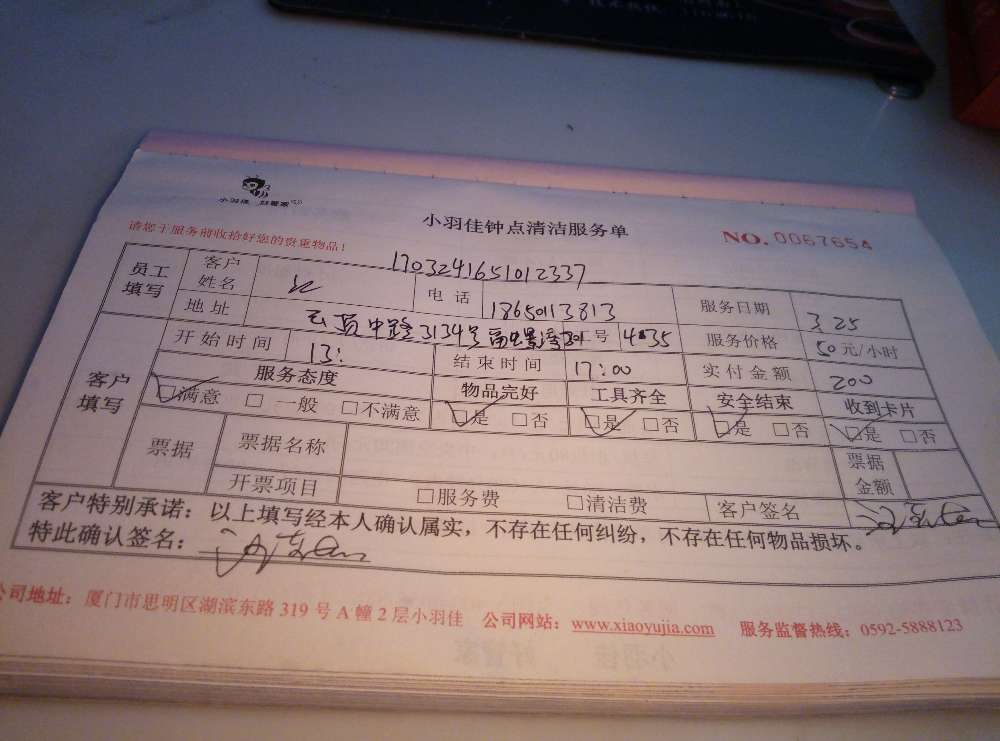 小羽佳 好管家
小羽佳钟点清洁服务单
NO. 0067654
请您于服务前收拾好您的贵重物品！
1703241651012337
员工填写 客户姓名 电话 18650113813 服务日期 3.25
地址 云顶中路3134号 号 服务价格 50元/小时
客户填写 开始时间 13: 结束时间 17:00 实付金额 200
服务态度 物品完好 工具齐全 安全结束 收到卡片
□满意 □一般 □不满意 □是 □否 □是 □否 □是 □否 □是 □否
票据 票据名称 票据金额
开票项目 □服务费 □清洁费 客户签名
客户特别承诺：以上填写经本人确认属实，不存在任何纠纷，不存在任何物品损坏。
特此确认签名：
公司地址：厦门市思明区湖滨东路 319 号 A 幢 2 层小羽佳 公司网站：www.xiaoyujia.com 服务监督热线：0592-5888123